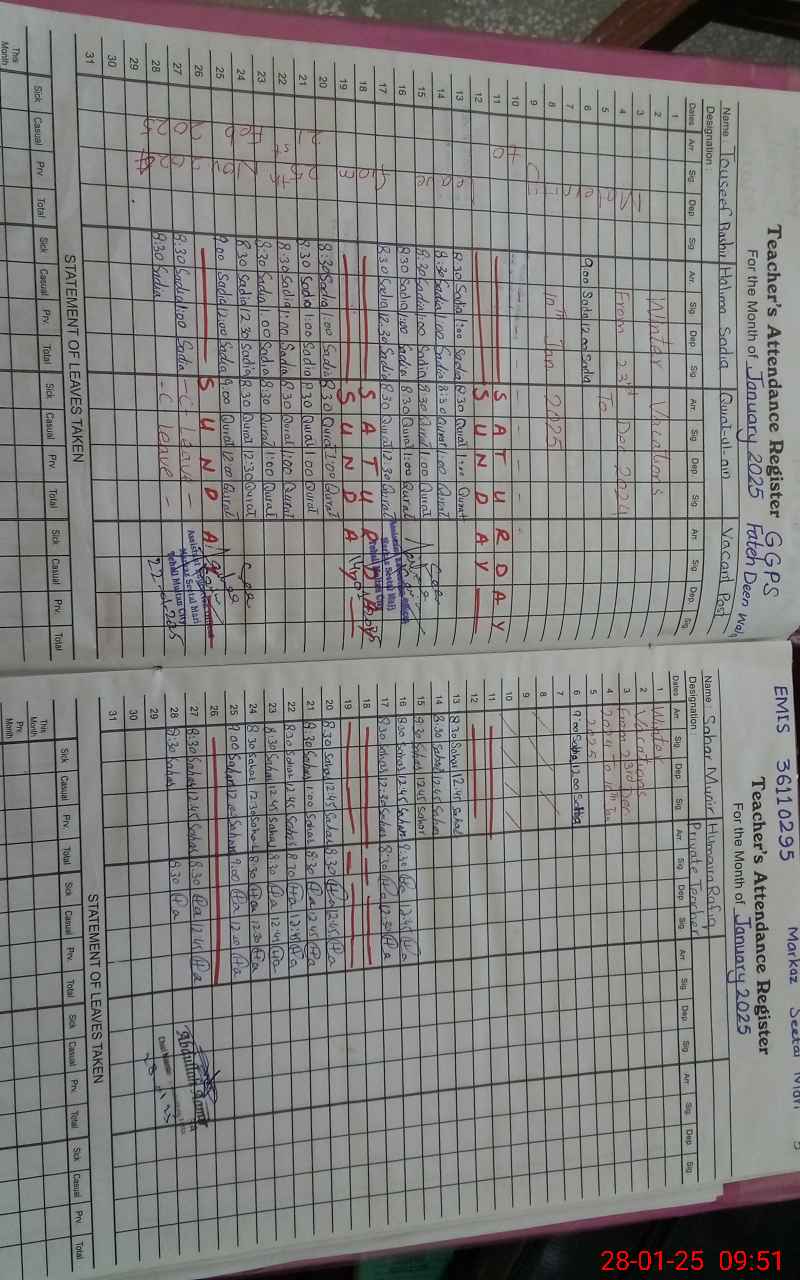 Teacher's Attendance Register GGPS
For the Month of January 2025 Fateh Deen Wala
Name: Touseef Bashir Halima Sadia Qurat-ul-ain Vacant Post
Designation:
Dates Arr. Sig. Dep. Sig. Arr. Sig. Dep. Sig. Arr. Sig. Dep. Sig. Arr. Sig. Dep. Sig.
1
2 Winter Vacations
3
4 From 23rd Dec 2024
5 To
6 9:00 Sadia 12:00 Sadia
7
8 10th Jan 2025
9
10
11 SATURDAY
12 SUNDAY
13 8:30 Sadia 1:00 Sadia 8:30 Qurat 1:00 Qurat
14 8:30 Sadia 1:00 Sadia 8:30 Qurat 1:00 Qurat
15 8:30 Sadia 1:00 Sadia 8:30 Qurat 1:00 Qurat
16 8:30 Sadia 1:00 Sadia 8:30 Qurat 1:00 Qurat
17 8:30 Sadia 12:30 Sadia 8:30 Qurat 12:30 Qurat
18 SATURDAY
19 SUNDAY
20 8:30 Sadia 1:00 Sadia 8:30 Qurat 1:00 Qurat
21 8:30 Sadia 1:00 Sadia 8:30 Qurat 1:00 Qurat
22 8:30 Sadia 1:00 Sadia 8:30 Qurat 1:00 Qurat
23 8:30 Sadia 1:00 Sadia 8:30 Qurat 1:00 Qurat
24 8:30 Sadia 12:30 Sadia 8:30 Qurat 12:30 Qurat
25 9:00 Sadia 12:00 Sadia 9:00 Qurat 12:00 Qurat
26 SUNDA
27 8:30 Sadia 1:00 Sadia - C Leave -
28 8:30 Sadia - C leave -
29
30
31
Maternity
Leave
from
25th Nov 2024
to
21st Feb 2025
STATEMENT OF LEAVES TAKEN
Sick Casual Prv. Total Sick Casual Prv. Total Sick Casual Prv. Total Sick Casual Prv. Total
This Month
EMIS 36110295 Markaz Seetal Mari
Teacher's Attendance Register
For the Month of January 2025
Name: Sahar Munir Humaira Rafiq
Designation: Private Teacher
Dates Arr. Sig. Dep. Sig. Arr. Sig. Dep. Sig. Arr. Sig. Dep. Sig. Arr. Sig. Dep. Sig.
1 Winter
2 Vacations
3 From 23rd Dec
4 2024 To 10th Jan
5 2025
6 9:00 Sahar 12:00 Sahar
7
8
9
10
11
12
13 8:30 Sahar 12:45 Sahar
14 8:30 Sahar 12:45 Sahar
15 8:30 Sahar 12:45 Sahar
16 8:30 Sahar 12:45 Sahar 8:30 Ha 12:45 Ha
17 8:30 Sahar 12:30 Sahar 8:30 Ha 12:30 Ha
18
19
20 8:30 Sahar 12:45 Sahar 8:30 Ha 12:45 Ha
21 8:30 Sahar 1:00 Sahar 8:30 Ha 12:45 Ha
22 8:30 Sahar 12:45 Sahar 8:30 Ha 12:45 Ha
23 8:30 Sahar 12:45 Sahar 8:30 Ha 12:45 Ha
24 8:30 Sahar 12:30 Sahar 8:30 Ha 12:30 Ha
25 9:00 Sahar 12:00 Sahar 9:00 Ha 12:00 Ha
26
27 8:30 Sahar 12:45 Sahar 8:30 Ha 12:45 Ha
28 8:30 Sahar 8:30 Ha
29
30
31
STATEMENT OF LEAVES TAKEN
Sick Casual Prv. Total Sick Casual Prv. Total Sick Casual Prv. Total Sick Casual Prv. Total
This Month
Prv. Month
28-01-25 09:51